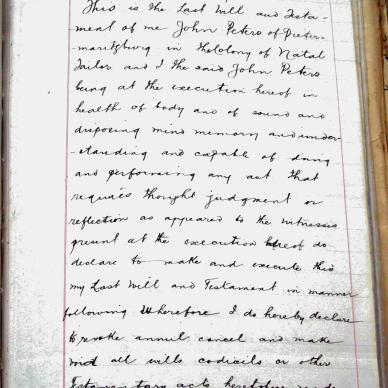 This is the Last Will and Testa-
ment of me John Peters of Pieter-
maritzburg in the Colony of Natal
Tailor and I the said John Peters
being at the execution hereof in
health of body and of sound and
disposing mind memory and under-
-standing and capable of doing
and performing any act that
requires thought judgment or
reflection as appeared to the witnesses
present at the execution hereof do
declare to make and execute this
my Last Will and Testament in manner
following Wherefore I do hereby declare
to revoke annul cancel and make
void all wills codicils or other
Testamentary acts heretofore made